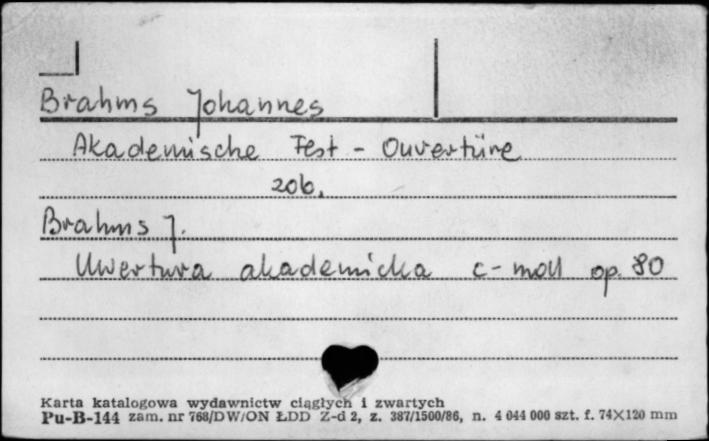 Brahms Johannes
Akademische Fest - Ouvertüre
zob.
Brahms J.
Uwertura akademicka c-moll op. 80
Karta katalogowa wydawnictw ciągłych i zwartych
Pu-B-144 zam. nr 768/DW/ON ŁDD Z-d 2, z. 387/1500/86, n. 4 044 000 szt. f. 74×120 mm